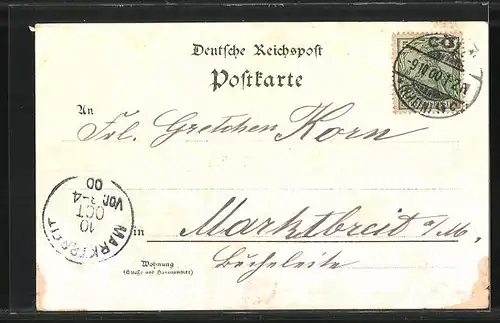 Deutsche Reichspost
Postkarte
An
Frl. Gretchen Korn
in Marktbreit a/M.
Wohnung
(Straße und Hausnummer)
Bucheleite
MARKTBREIT
10
OCT
Vor. 3-4
00